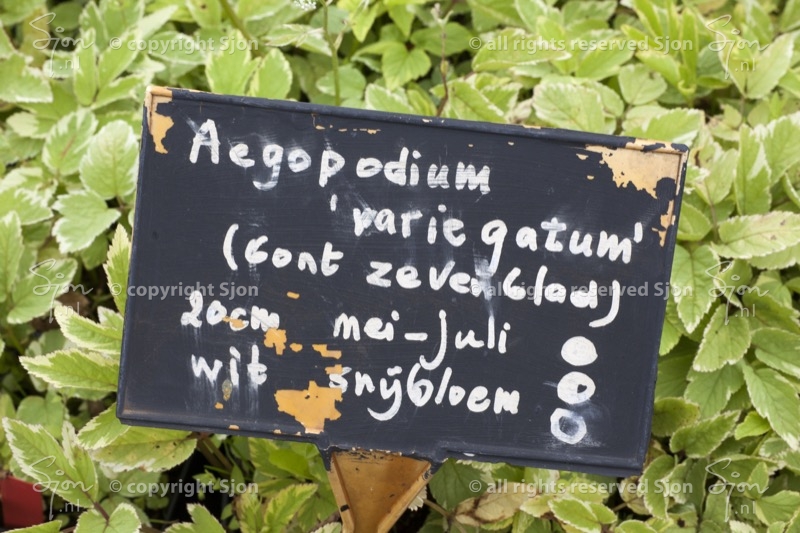 Aegopodium
'variegatum'
(bont zevenblad)
20cm mei-juli
wit snijbloem
© copyright Sjon
© all rights reserved Sjon
© copyright Sjon
© all rights reserved Sjon
© copyright Sjon
© all rights reserved Sjon
Sjon.nl